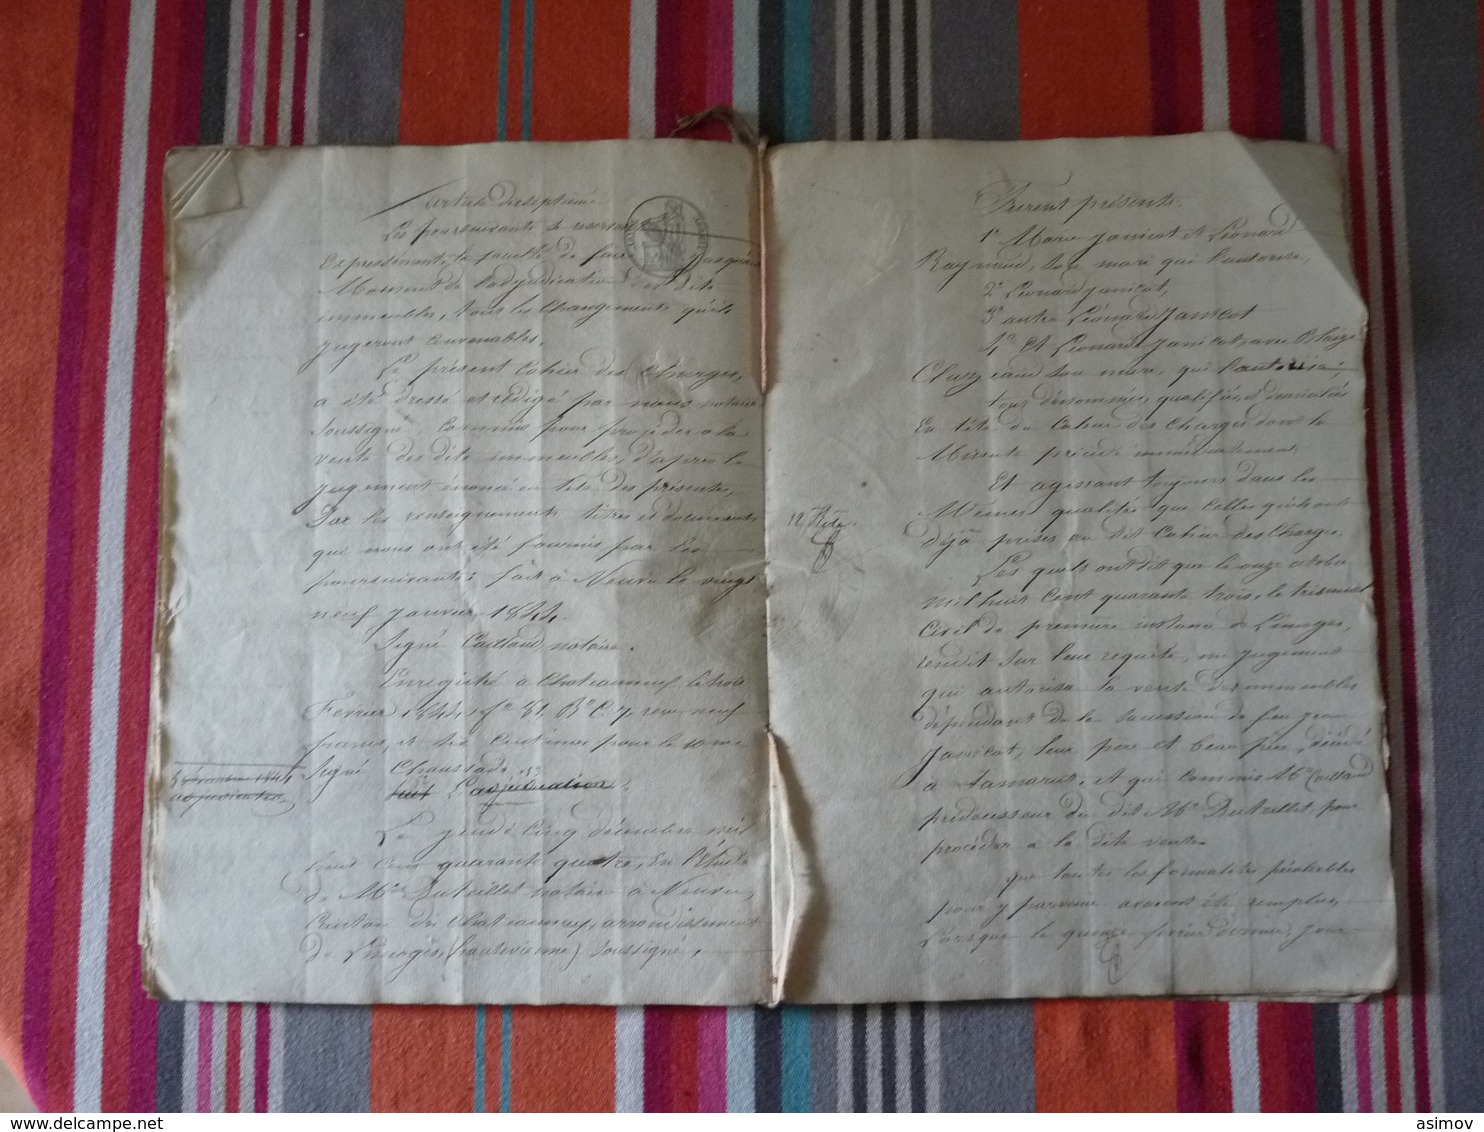 Article dixseptième
Les poursuivants se réservent
Expressément, la faculté de faire jusquau
Moment de l'adjudication des dits
immeubles, tous les changements qu'ils
jugeront convenables.
Le présent Cahier des Charges,
a été dressé et rédigé par nous notaire
Soussigné, comme pour procéder a la
vente des dits immeubles, d'après le
jugement énoncé en tête des présentes,
Sur les renseignements, titres et documents
qui nous ont été fournis par les
poursuivants; fait à Neuvic le vingt
neuf janvier 1844.
Signé Caillaud notaire.
Enregistré à Chateauneuf le trois
Fevrier 1844, fo 81, Ro C 7, reçu neuf
francs, et dix Centimes pour le 10me
Signé Chaussade
Suit L'adjudication.
5 décembre 1844
adjudication
Le jeudi cinq décembre mil
huit cent quarante quatre, En l'étude
de Me Duteillet notaire à Neuvic,
Canton de Chateauneuf, arrondissement
de Limoges, (hautevienne) Soussigné,
Furent présents
1o Marie Janicot et Léonard
Raynaud, son mari qui l'autorise,
2o Léonard Janicot,
3o autre Léonard Janicot
4o Et Léonarde Janicot, avec Blaize
son mari, qui l'autorise,
tous dénommés, qualifiés, et domiciliés
En tête du Cahier des Charges dont la
Minute précède immédiatement.
Et agissant toujours dans les
Mêmes qualités que celles qu'ils ont
déjà prises au dit Cahier des Charges.
12 Rôle
Les quels ont dit que le onze octobre
mil huit cent quarante trois, le tribunal
Civil de première instance de Limoges,
rendit sur leur requête, un jugement
qui autorisa la vente des immeubles
dépendant de la succession de feu Jean
Janicot, leur père et beau père, décédé
à , Et qui commis Me Caillaud
prédécesseur du dit Me Duteillet, pour
procéder à la dite vente.
que toutes les formalités préalables
pour y parvenir avaient été remplies,
Lorsque le quinze février dernier, jour
asimov